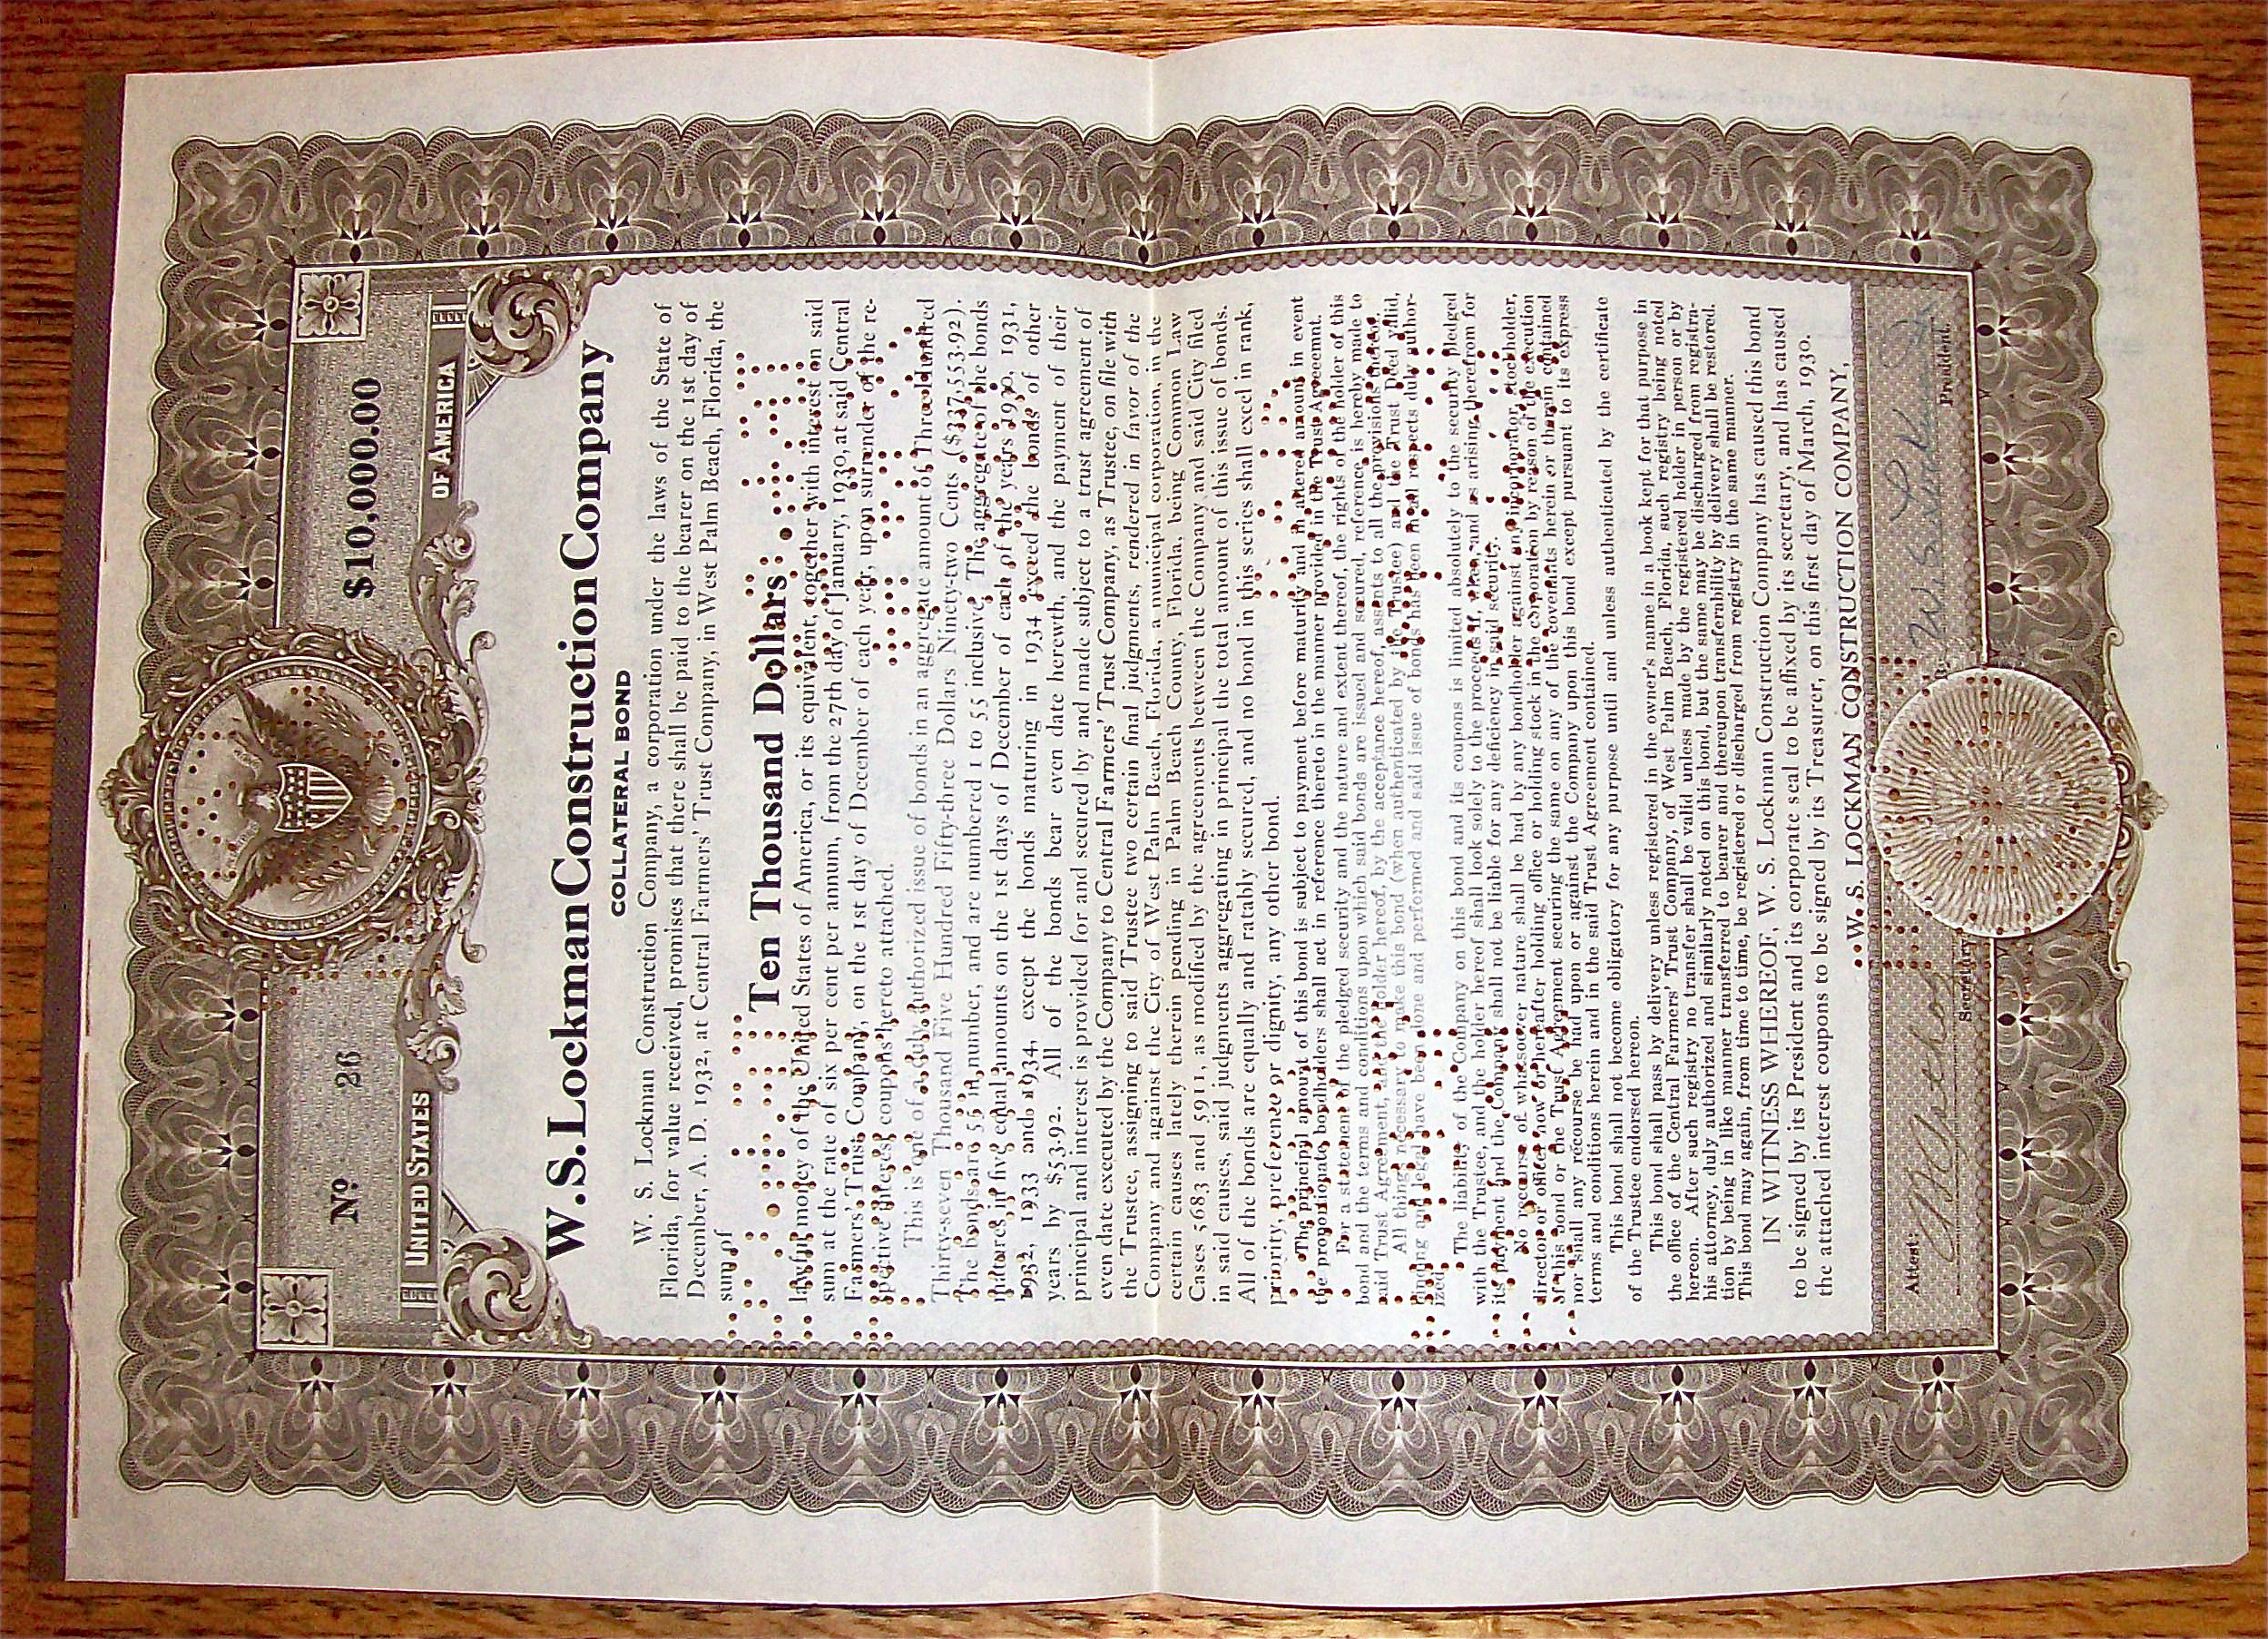 Nº 26
$10,000.00
UNITED STATES
OF AMERICA
W. S. Lockman Construction Company
COLLATERAL BOND
W. S. Lockman Construction Company, a corporation under the laws of the State of
Florida, for value received, promises that there shall be paid to the bearer on the 1st day of
December, A. D. 1932, at Central Farmers' Trust Company, in West Palm Beach, Florida, the
sum of
Ten Thousand Dollars
lawful money of the United States of America, or its equivalent, together with interest on said
sum at the rate of six per cent per annum, from the 27th day of January, 1930, at said Central
Farmers' Trust Company, on the 1st day of December of each year, upon surrender of the re-
spective interest coupons hereto attached.
This is one of a duly authorized issue of bonds in an aggregate amount of Three Hundred
Thirty-seven Thousand Five Hundred Fifty-three Dollars Ninety-two Cents ($337,553.92).
The bonds are 55 in number, and are numbered 1 to 55 inclusive. The aggregate of the bonds
matures in five equal amounts on the 1st days of December of each of the years 1930, 1931,
1932, 1933 and 1934, except the bonds maturing in 1934 exceed the bonds of other
years by $53.92. All of the bonds bear even date herewth, and the payment of their
principal and interest is provided for and secured by and made subject to a trust agreement of
even date executed by the Company to Central Farmers' Trust Company, as Trustee, on file with
the Trustee, assigning to said Trustee two certain final judgments, rendered in favor of the
Company and against the City of West Palm Beach, Florida, a municipal corporation, in the
certain causes lately therein pending in Palm Beach County, Florida, being Common Law
Cases 5683 and 5911, as modified by the agreements between the Company and said City filed
in said causes, said judgments aggregating in principal the total amount of this issue of bonds.
All of the bonds are equally and ratably secured, and no bond in this series shall excel in rank,
priority, preference or dignity, any other bond.
The principal amount of this bond is subject to payment before maturity and in altered amount in event
the proportionate bondholders shall act in reference thereto in the manner provided in the Trust Agreement.
For a statement of the pledged security and the nature and extent thereof, the rights of the holder of this
bond and the terms and conditions upon which said bonds are issued and secured, reference is hereby made to
said Trust Agreement, and the holder hereof, by the acceptance hereof, assents to all the provisions thereof.
All things necessary to make this bond (when authenticated by the Trustee) and the Trust Deed valid,
binding and legal have been done and performed and said issue of bonds has been in all respects duly author-
ized.
The liability of the Company on this bond and its coupons is limited absolutely to the security pledged
with the Trustee, and the holder hereof shall look solely to the proceeds if, when, and as arising therefrom for
its payment and the Company shall not be liable for any deficiency in said security.
No recourse of whatsoever nature shall be had by any bondholder against any incorporator, stockholder,
director or officer now or hereafter holding office or holding stock in the corporation by reason of the execution
of this bond or the Trust Agreement securing the same on any of the covenants herein or therein contained
nor shall any recourse be had upon or against the Company upon this bond except pursuant to its express
terms and conditions herein and in the said Trust Agreement contained.
This bond shall not become obligatory for any purpose until and unless authenticated by the certificate
of the Trustee endorsed hereon.
This bond shall pass by delivery unless registered in the owner's name in a book kept for that purpose in
the office of the Central Farmers' Trust Company, of West Palm Beach, Florida, such registry being noted
hereon. After such registry no transfer shall be valid unless made by the registered holder in person or by
his attorney, duly authorized and similarly noted on this bond, but the same may be discharged from registra-
tion by being in like manner transferred to bearer and thereupon transferability by delivery shall be restored.
This bond may again, from time to time, be registered or discharged from registry in the same manner.
IN WITNESS WHEREOF, W. S. Lockman Construction Company has caused this bond
to be signed by its President and its corporate seal to be affixed by its secretary, and has caused
the attached interest coupons to be signed by its Treasurer, on this first day of March, 1930.
W. S. LOCKMAN CONSTRUCTION COMPANY,
Attest:
W. S. Lockman
Secretary
President.